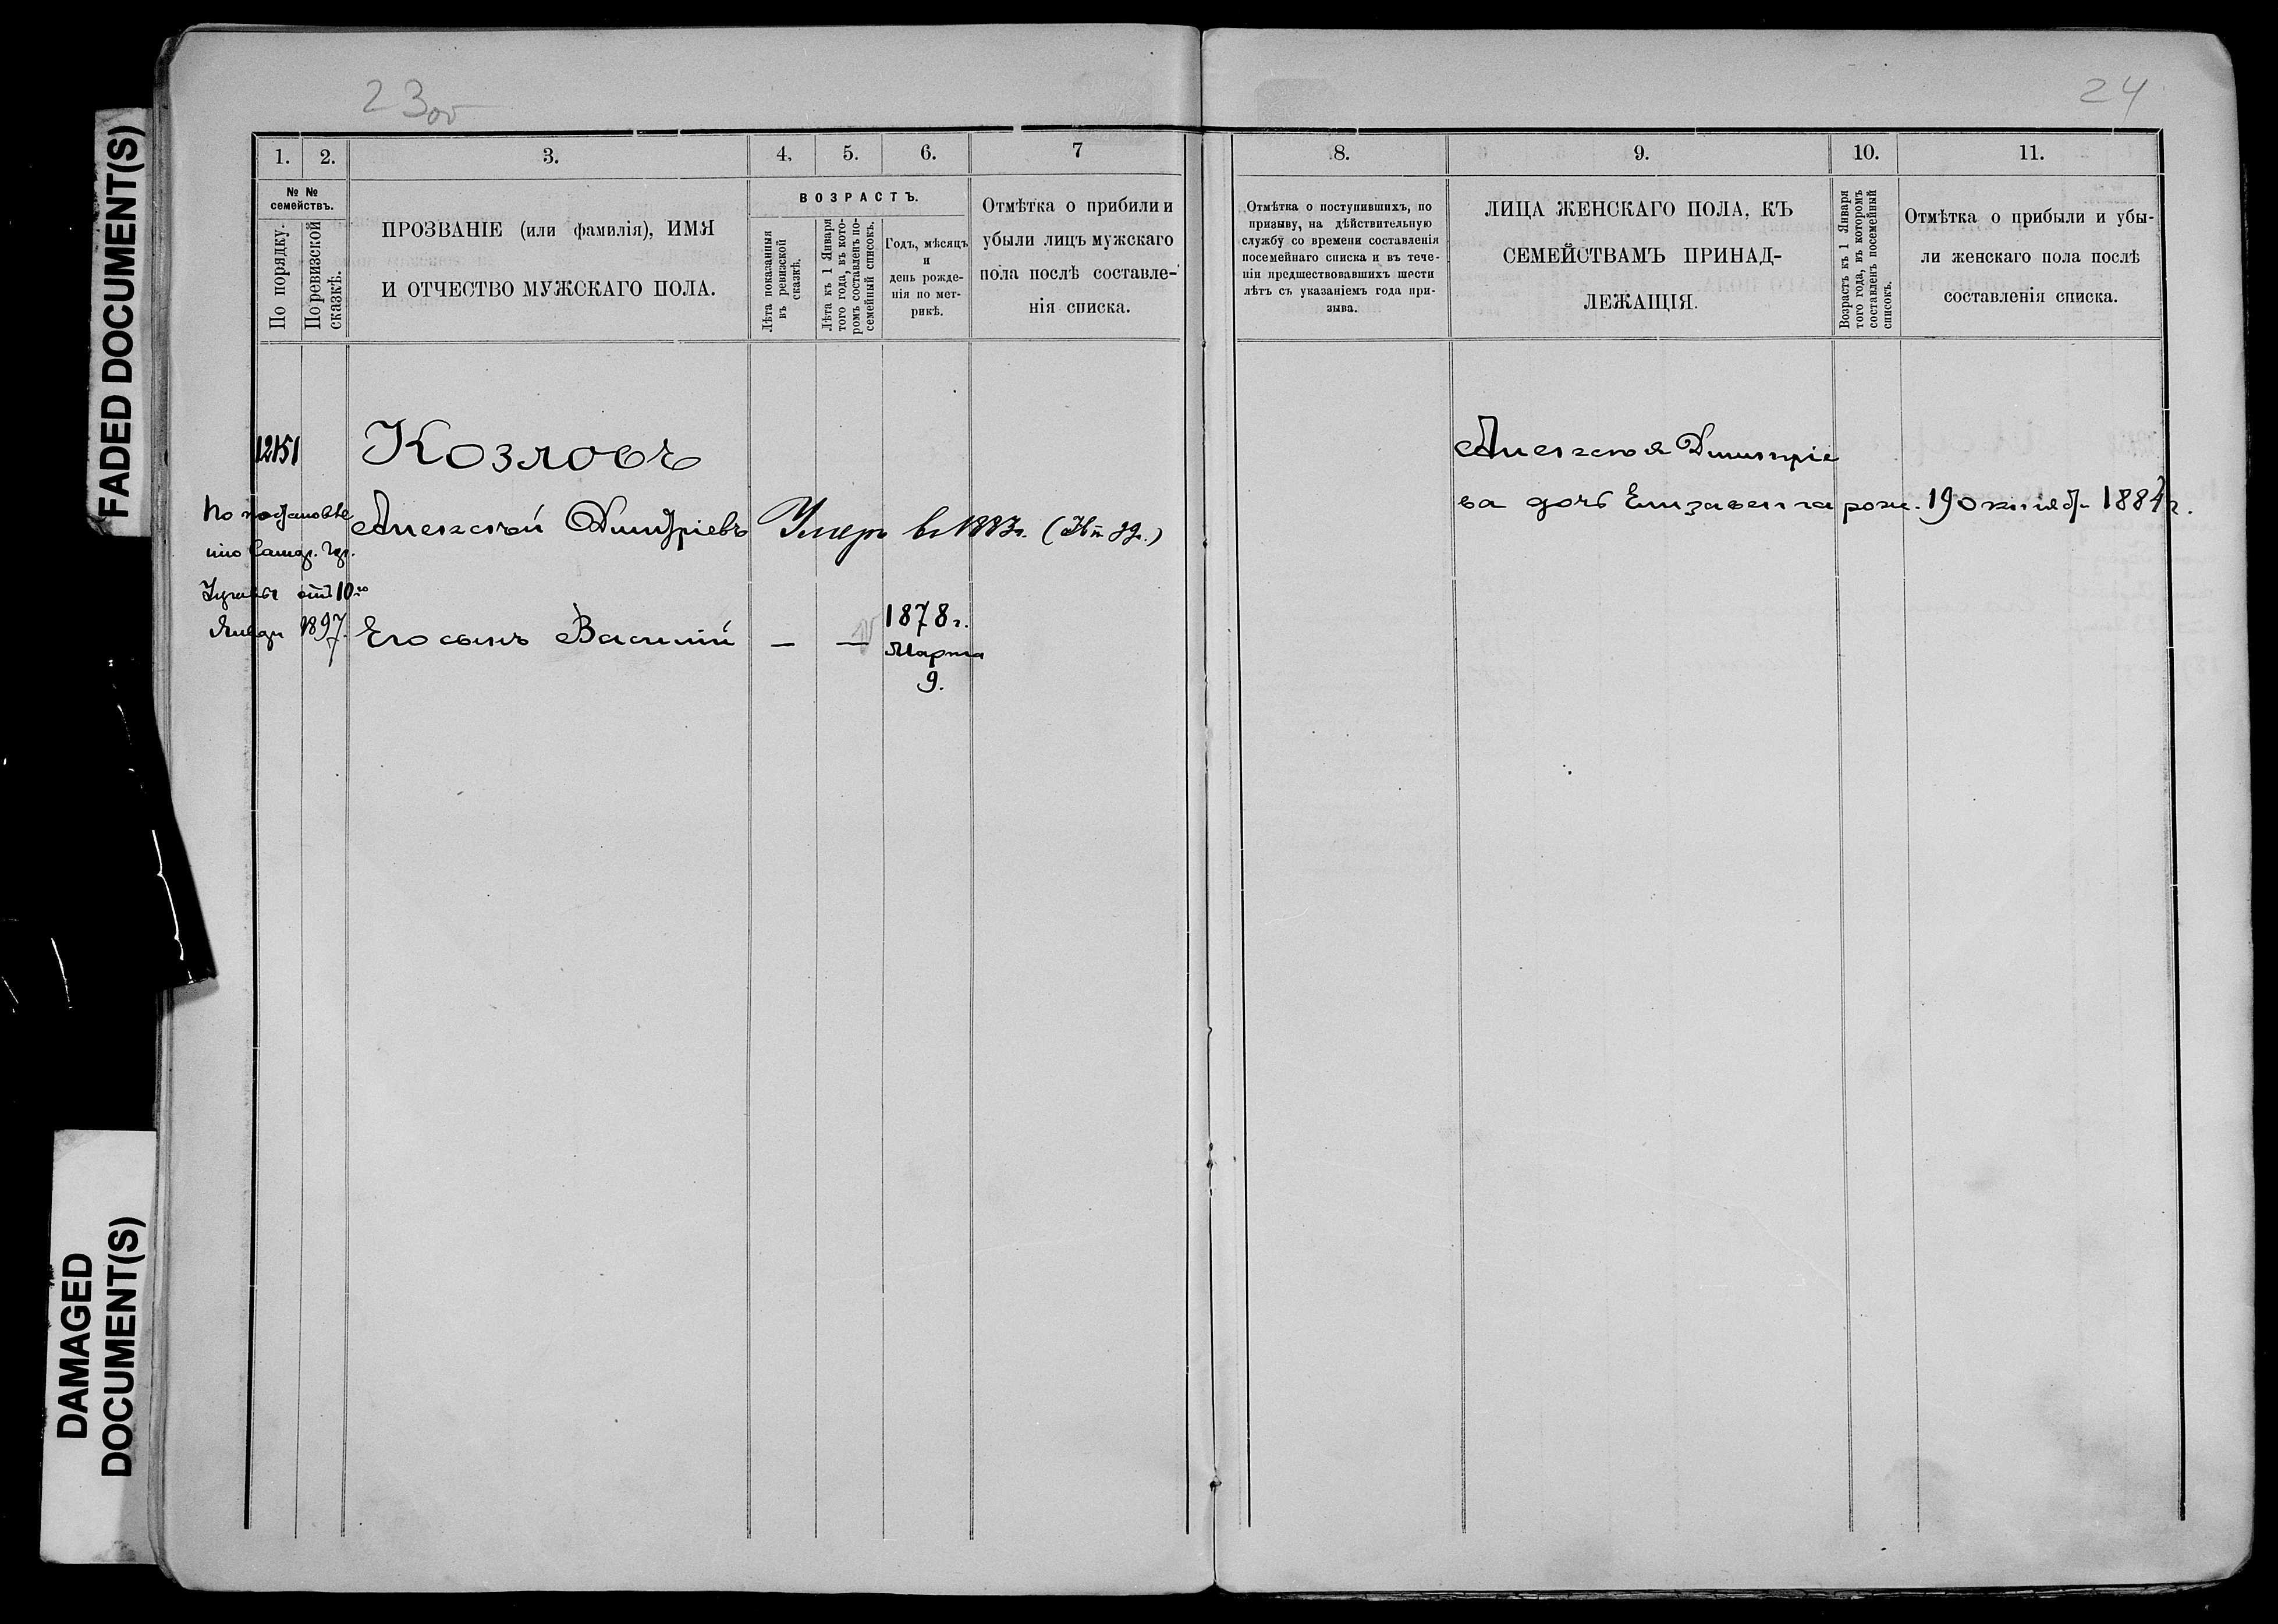 FADED DOCUMENT(S)
DAMAGED
DOCUMENT(S)
23об
1.
2.
3.
4.
5.
6.
7
№ №
семействъ.
По порядку.
По ревизской
сказкѣ.
ПРОЗВАНІЕ (или фамилія), ИМЯ
И ОТЧЕСТВО МУЖСКАГО ПОЛА.
ВОЗРАСТЪ.
Лѣта показанныя
въ ревизской
сказкѣ.
Лѣта къ 1 Января
того года, въ кото-
ромъ составленъ по-
семейный списокъ.
Годъ, мѣсяцъ
и
день рожде-
нія по мет-
рикѣ.
Отмѣтка о прибыли и
убыли лицъ мужскаго
пола послѣ составле-
нія списка.
Козловъ
По постановле
нію Самар. Гор.
Управы отъ 10го
Январ 1897.
Алексѣй Димитріевъ Умеръ въ 1887г.
Его сынъ Василій — —
1878 г.
Марта
9.
24
8.
9.
10.
11.
Отмѣтка о поступившихъ, по
призыву, на дѣйствительную
службу со времени составленія
посемейнаго списка и въ тече-
ніи предшествовавшихъ шести
лѣтъ съ указаніемъ года при-
зыва.
ЛИЦА ЖЕНСКАГО ПОЛА, КЪ
СЕМЕЙСТВАМЪ ПРИНАД-
ЛЕЖАЩІЯ.
Возрастъ къ 1 Января
того года, въ которомъ
составленъ посемейный
списокъ.
Отмѣтка о прибыли и убы-
ли женскаго пола послѣ
составленія списка.
Алексѣя Димитріе
ва дочь Елизавета рож. 19 октяб. 1884 г.